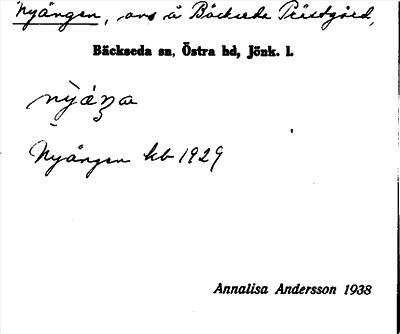 Nyången, avs å Bäckseda Prästgård,
Bäckseda sn, Östra hd, Jönk. l.
Nyången kb 1929
Annalisa Andersson 1938